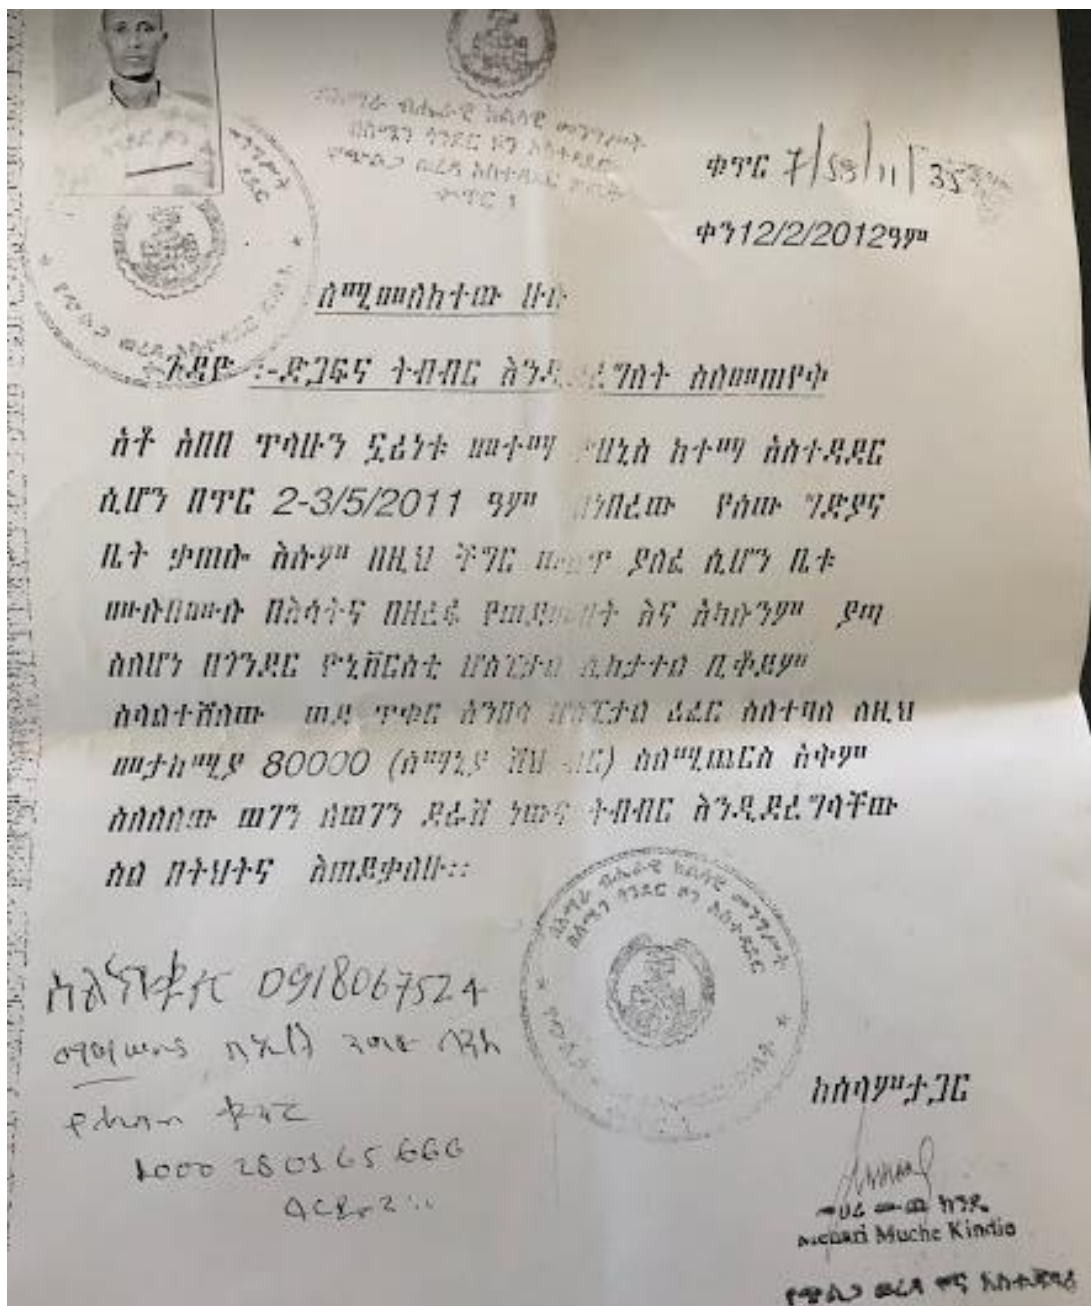 በአማራ ብሔራዊ ክልላዊ መንግሥት
በሰሜን ጎንደር ዞን አስተዳደር
የጭልጋ ወረዳ አስተዳደር ጽ/ቤት
ቁጥር 7/59/11/35
ቀን 12/2/2012ዓም
ለሚመለከተው ሁሉ
ጉዳዩ ፡-ድጋፍና ትብብር እንዲደረግለት ስለመጠየቅ
አቶ አበበ ጥላሁን ኗሪነቱ መተማ ዮሀኒስ ከተማ አስተዳደር
ሲሆን በጥር 2-3/5/2011 ዓም በነበረው የሰው ግድያና
ቤት ቃጠሎ እሱም በዚህ ችግር ውስጥ ያለፈ ሲሆን ቤቱ
ሙሉበሙሉ በእሳትና በዘረፋ የወደመበት እና አካሉንም ያጣ
ስለሆነ በጎንደር ዮኒቨርስቲ ሆስፒታል ሲከታተል ቢቆይም
ስላልተሸለው ወደ ጥቁር አንበሳ ሆስፒታል ሪፈር ስለተባለ ለዚህ
መታከሚያ 80000 (ሰማኒያ ሽህ ብር) ስለሚጨርስ አቅም
ስለሌለው ወገን ለወገን ደራሽ ነውና ትብብር እንዲደረግላቸው
ስል በትህትና እጠይቃለሁ፡፡
ስልክ ቁጥር 0918067524
በአማራ ብሔራዊ ክልላዊ መንግሥት
በሰሜን ጎንደር ዞን አስተዳደር
ከሰላምታጋር
መሀሪ ሙጨ ክንዴ
Mehari Muche Kindie
የጭልጋ ወረዳ ዋና አስተዳዳሪ